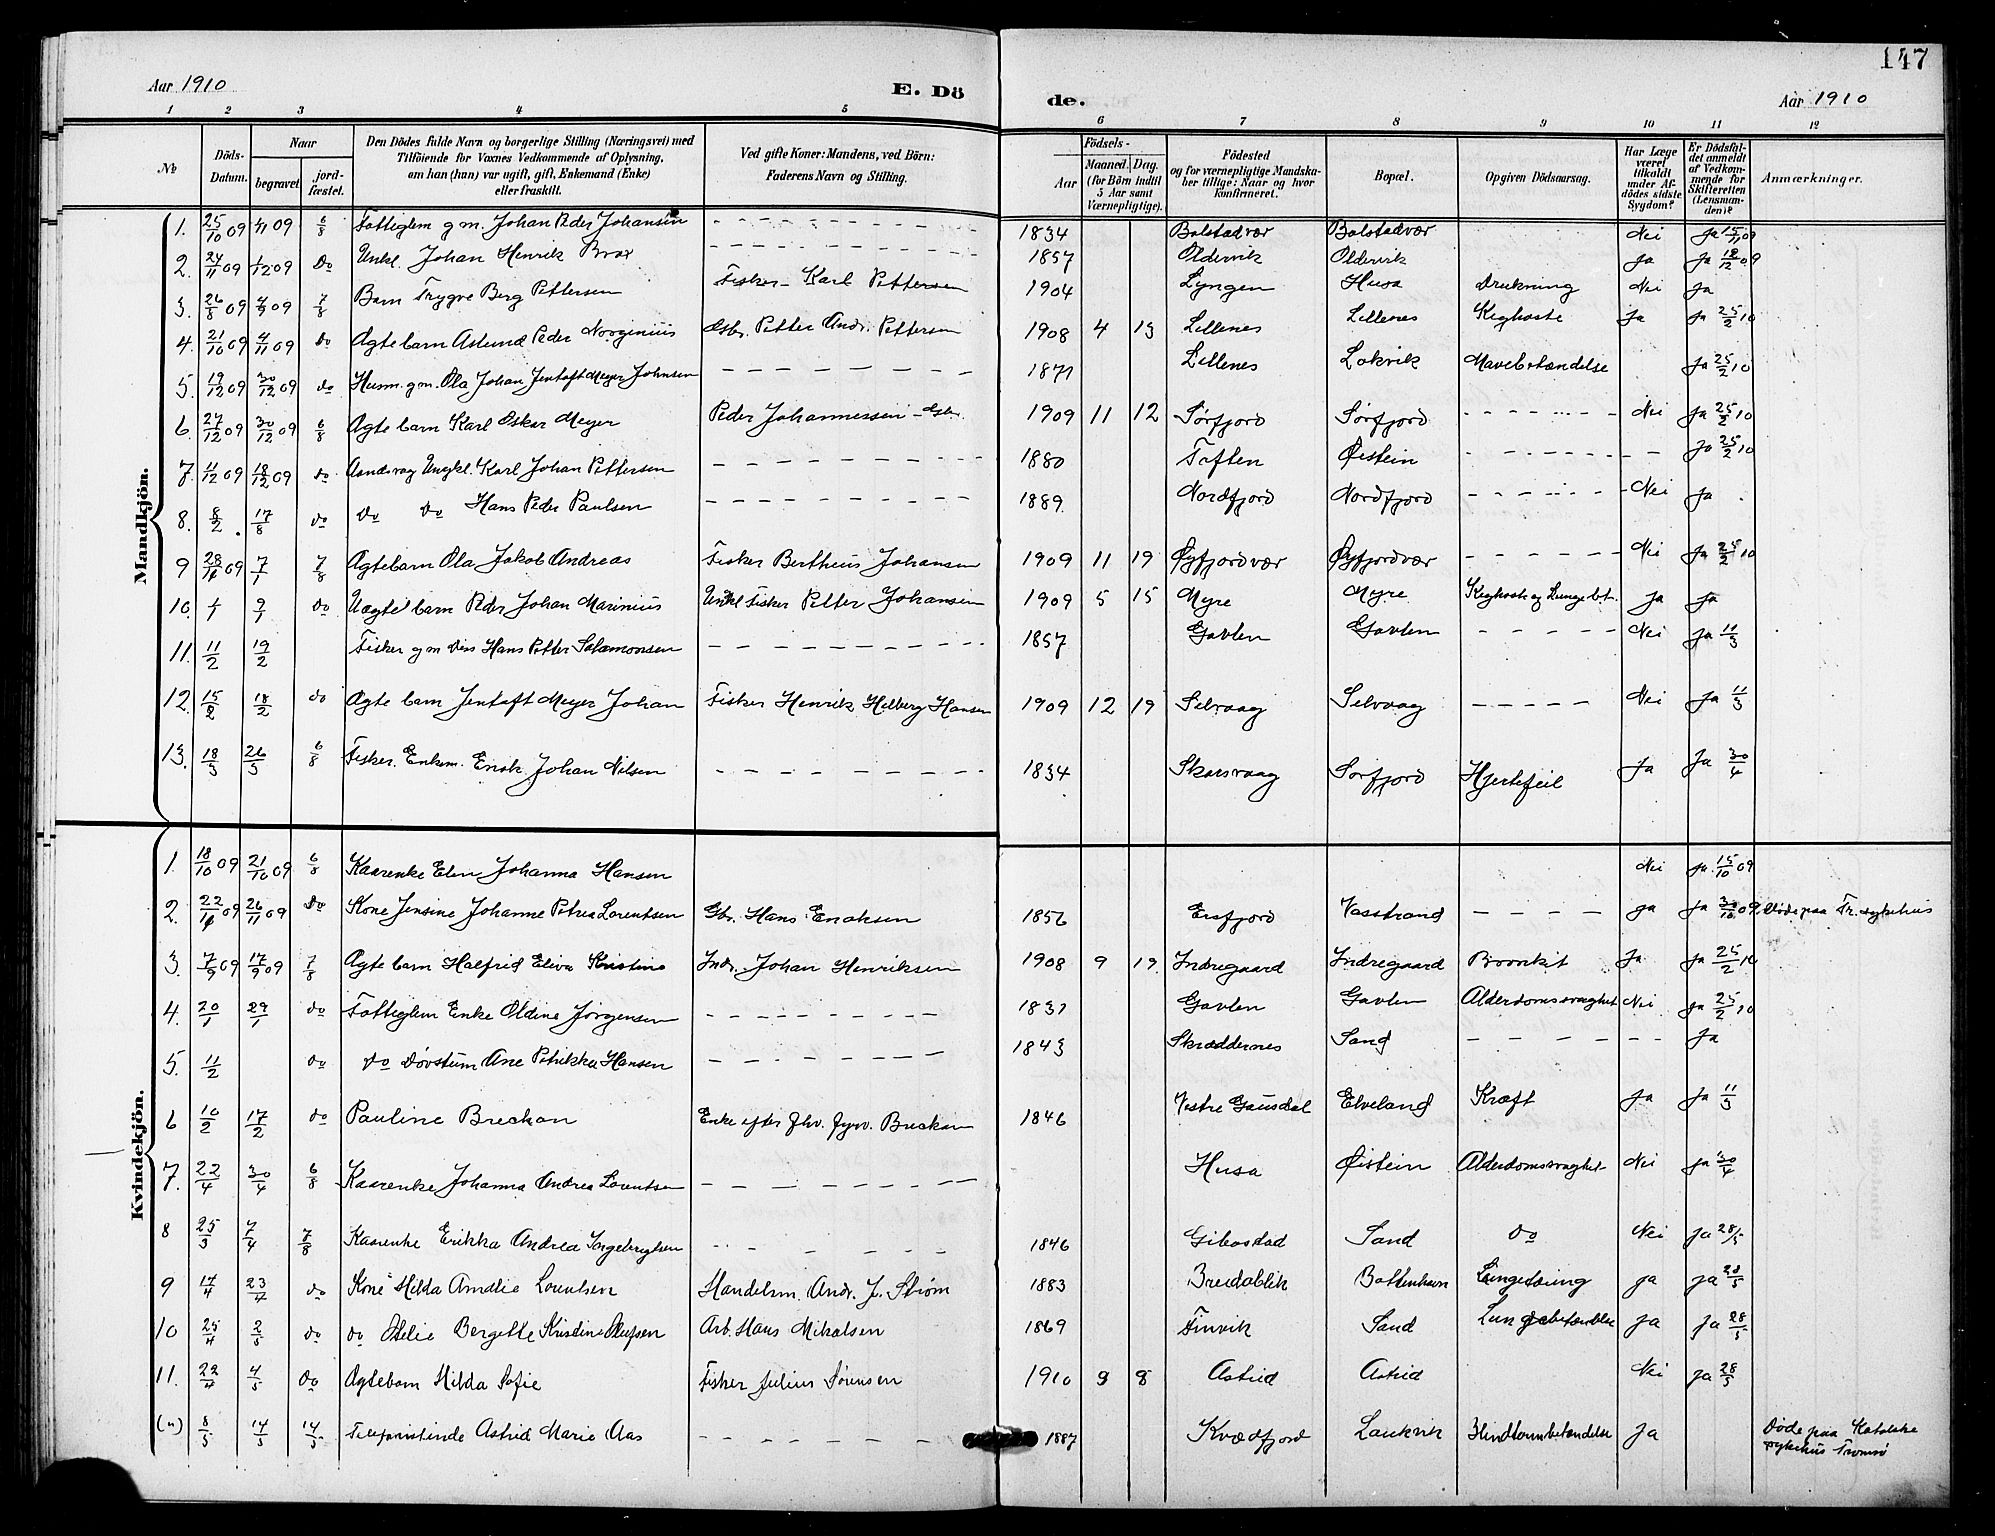 147
Aar 1910 E. Dö de. Aar 1910
1 2 3 4 5 6 7 8 9 10 11 12
No
Döds-Datum.
Naar
begravet.
jord-fæstet.
Den Dödes fulde Navn og borgerlige Stilling (Næringsvei) med
Tilföiende for Voxnes Vedkommende af Oplysning,
om han (hun) var ugift, gift, Enkemand (Enke)
eller fraskilt.
Ved gifte Koner: Mandens, ved Börn:
Faderens Navn og Stilling.
Födsels-
Aar
Maaned. Dag.
(for Börn indtil
5 Aar samt
Værnepligtige).
Födested
og for værnepligtige Mandska-
ber tillige: Naar og hvor
konfirmeret.
Bopæl.
Opgiven Dödsaarsag.
Har Læge
været
tilkaldt
under Af-
dödes sidste
Sygdom?
Er Dödsfal-
det anmeldt
af Vedkom-
mende for
Skifteretten
(Lensman-
den)?
Anmærkninger.
Mandkjön.
1. 25/10 09 4/11 09 6/8 Fattiglem g m. Johan Peder Johansen 1834 Bolstadvær Bolstadvær Nei Ja 15/11 09
2. 24/11 09 1/12 09 do Unkl. Johan Henrik Brox 1857 Oldervik Oldervik Ja Ja 12/12 09
3. 26/8 09 4/9 09 7/8 Barn Trygve Berg Pettersen Fisker Karl Pettersen 1904 Lyngen Husa Drukning Nei Ja
4. 21/10 09 4/11 09 do Ægte barn Astund Peder Norginius Gsbr. Petter Andr. Pettersen 1908 4 13 Lillenes Lillenes Kighoste Ja Ja 25/2 10
5. 19/12 09 30/12 09 do Husm. g m. Ola Johan Jentoft Meyer Johnsen 1871 Lillenes Lokvik Mavebetændelse Ja 25/2 10
6. 27/12 09 30/12 09 6/8 Ægte barn Karl Oskar Meyer Peder Johannessen Gsbr. 1909 11 12 Sørfjord Sørfjord Nei Ja 25/2 10
7. 11/12 09 18/12 09 do Aandsvag Ungkl. Karl Johan Pettersen 1880 Toften Øistein Ja 25/2 10
8. 8/2 17/8 do do do Hans Peder Paulsen 1889 Nordfjord Nordfjord Nei Ja
9 28/11 09 7/1 7/8 Ægtebarn Ola Jakob Andreas Fisker Bertheus Johansen 1909 11 19 Øyfjordvær Øyfjordvær Nei Ja 25/2 10
10. 9/1 do Uægte barn Peder Johan Marinius Unkl fisker Petter Johansen 1909 5 15 Myre Myre Kighoste og Lungebet. Ja Ja
11. 11/2 19/2 Fisker g m Hans Petter Salamonsen 1857 Gavlen Gavlen Nei Ja 11/3
12. 15/2 18/2 do Ægte barn Jentoft Meyer Johan Fisker Henrik Hilberg Hansen 1909 12 19 Selvaag Selvaag Nei Ja 11/3
13. 18/3 26/3 6/8 Fisker. Enkem. Enok Johan Nilsen 1834 Skarsvaag Sørfjord Hjertefeil Ja Ja 30/4
Kvindekjön.
1. 18/10 09 21/10 09 6/8 Kaarenke Elen Johanna Hansen Nei Ja 15/10 09
2. 22/11 09 26/11 09 do Kone Jensine Johanne Petrea Lorentsen Gbr. Hans Enoksen 1856 Ersfjord Vasstrand Ja Ja 09 Døde paa Tr. sykehus
3. 7/9 09 17/9 09 7/8 Ægte barn Halfrid Eliva Kristine Indr. Johan Henriksen 1908 9 19 Indregaard Indregaard Bronkit Ja Ja 25/2 10
4. 20/1 29/1 do Fattiglem Enke Oldine Jørgensen 1831 Gavlen Gavlen Alderdomssvaghet Nei Ja 25/2 10
5. 11/2 do do Døvstum Ane Petrikka Hansen 1843 Skræddernes Sand Ja
6 10/2 17/2 do Pauline Breckan Enke efter fhv. fyrv. Breckan 1846 Vestre Gausdal Elveland Kræft Ja Ja 11/3
7. 22/4 30/4 6/8 Kaarenke Johanna Andrea Lorentsen Husa Øistein Alderdomssvaghet Nei Ja 30/4
8 25/3 7/4 7/8 Kaarenke Erikka Andrea Ingebrigtsen 1846 Gibostad Sand do Nei Ja 28/5
9 17/4 23/4 do Kone Hilda Amalie Lorentsen Handelsm. Andr. J. Strøm 1883 Breidablik Bottenhavn Lungetæring Ja Ja 28/5
10 25/4 2/5 do do Bergette Kristine Olufsen Arb. Hans Mikalsen 1869 Finvik Sand Lungebetændelse Ja Ja 28/5
11. 22/4 4/5 do Ægtebarn Hilda Sofie Fisker Julius Sørensen 1910 9 8 Astrid Astrid Nei Ja 28/5
(") 8/5 14/5 14/5 Telefonistinde Astrid Marie Aas 1887 Kvædfjord Laukvik Blindtarmbetændelse Ja Døde paa Katolske
sykehus Tromsø